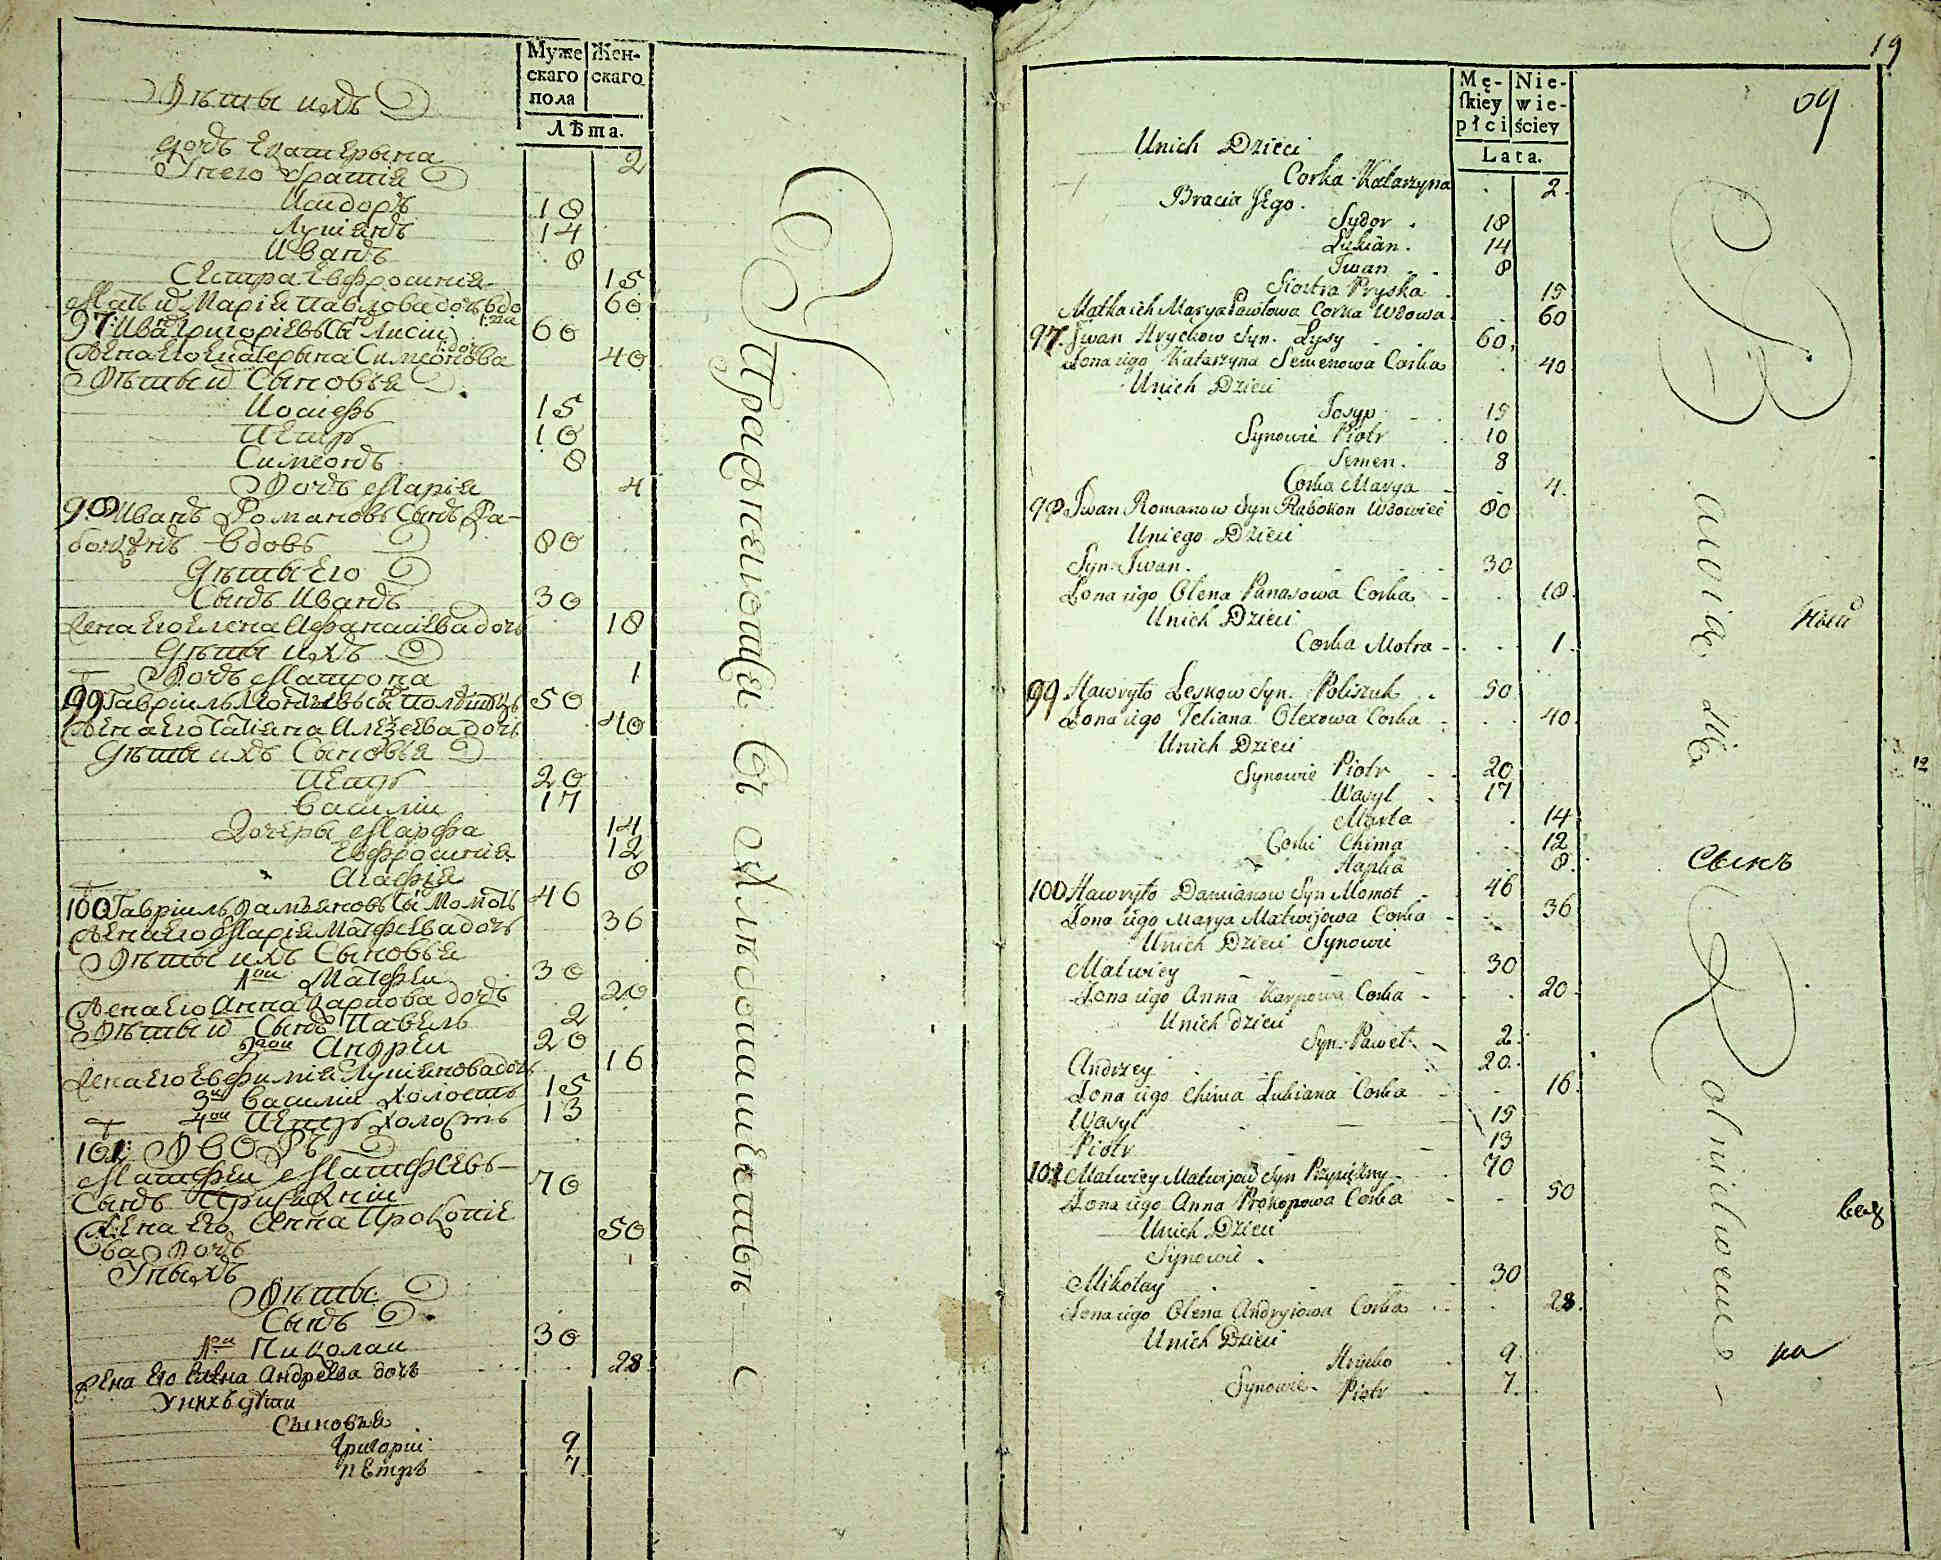 Муже
скаго
пола
Жен-
скаго
Лѣта.
Дѣти ихъ
дочь Екатерына 2
У него братія
Исидоръ 18
Лукіанъ 14
Иванъ 8
Сестра Евфросинія 15
Мать их Марія Павлова дочь вдо 60
97 Иванъ Григоріевъ сынъ Лисій 60
Жена его Екатерына Симеонова дочь 40
Дѣти их Сыновья
Иосифъ 15
Петръ 10
Симеонъ 8
Дочь Марія 4
98 Иванъ Романовъ Сынъ Ра-
боконь вдовъ 80
Дѣти его
Сынъ Иванъ 30
Жена его Елена Афанасіева дочь 18
Дѣти ихъ
Дочь Матрона 1
99 Гавріилъ сынъ 50
Жена его Татіана Алеѯеева дочь 40
Дѣти ихъ Сыновья
Петръ 20
Василіи 17
Дочеры Марфа 14
Евфросинія 12
Агафія 8
100 Гавріилъ Даміановъ сынъ Момотъ 46
Жена его Марія Матфіева дочь 36
Дѣти ихъ Сыновья
1ои Матфеи 30
Жена его Анна Карпова дочь 20
Дѣти их Сынъ Павелъ 2
2ои Андреи 20
Жена его Евфимія Лукіанова дочь 16
3и Василіи холостъ 15
4ои Петръ холостъ 13
101 ДВОРЪ
Матфеи Матфеевъ
Сынъ 70
Жена его Анна Прокопіе
ва Дочь 50
У ныхъ
Дѣти
Сынъ
1и Николаи 30
Жена его Елена Андреева дочь 28
У нихъ дѣти
Сыновья
Григоріи 9
Петръ 7
19
Mę-
skiey
płci
Nie-
wie-
ściey
Lata.
Unich Dzieci
Corka Katarzyna 2
Bracia Jego.
Sydor 18
Lukian. 14
Iwan 8
Siostra Pryska 15
Matka ich Marya Pawłowa Corka Wdowa 60
97. Iwan Hryckow Syn. Łysy 60
Żona iego Katarzyna Semenowa Corka 40
Unich Dzieci
Josyp 15
Synowie Piotr 10
Semen. 8
Corka Marya 4
98 Iwan Romanow Syn Rabokon Wdowiec 80
Uniego Dzieci
Syn Iwan. 30
Żona iego Olena Panasowa Corka 18
Unich Dzieci
Corka Motra 1
99 Hawryło Leskow Syn. Poliszuk 50
Żona iego Teliana Olexowa Corka 40
Unich Dzieci
Synowie Piotr 20
Wasyl 17
Marta 14
Corki Chima 12
Hapka 8
100 Hawryło Damianow Syn Momot 46
Żona iego Marya Matwijowa Corka 36
Unich Dzieci Synowie
Matwiey 30
Żona iego Anna Karpowa Corka 20
Unich dzieci
Syn Paweł 2
Andrzey 20
Żona iego Chima Lukiana Corka 16
Wasyl 15
Piotr 13
101 Matwiey Matwijow Syn 70
Żona iego Anna Prokopowa Corka 50
Unich Dzieci
Synowie
Mikołay 30
Żona iego Olena Andryiowa Corka 28
Unich Dzieci
Hryćko 9
Synowie Piotr 7
сынъ
на